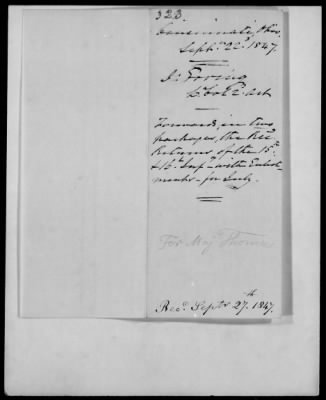 323
Cincinnati, Ohio.
Septr. 22d 1847.
J.
Lt. Col. 2d Art
Forwards, in two
packages, the Rec.
Returns of the 15th
& 16th Infy. with Enlist-
ments - for July.
For Maj. Thomas
Recd. Septr 27th 1847.